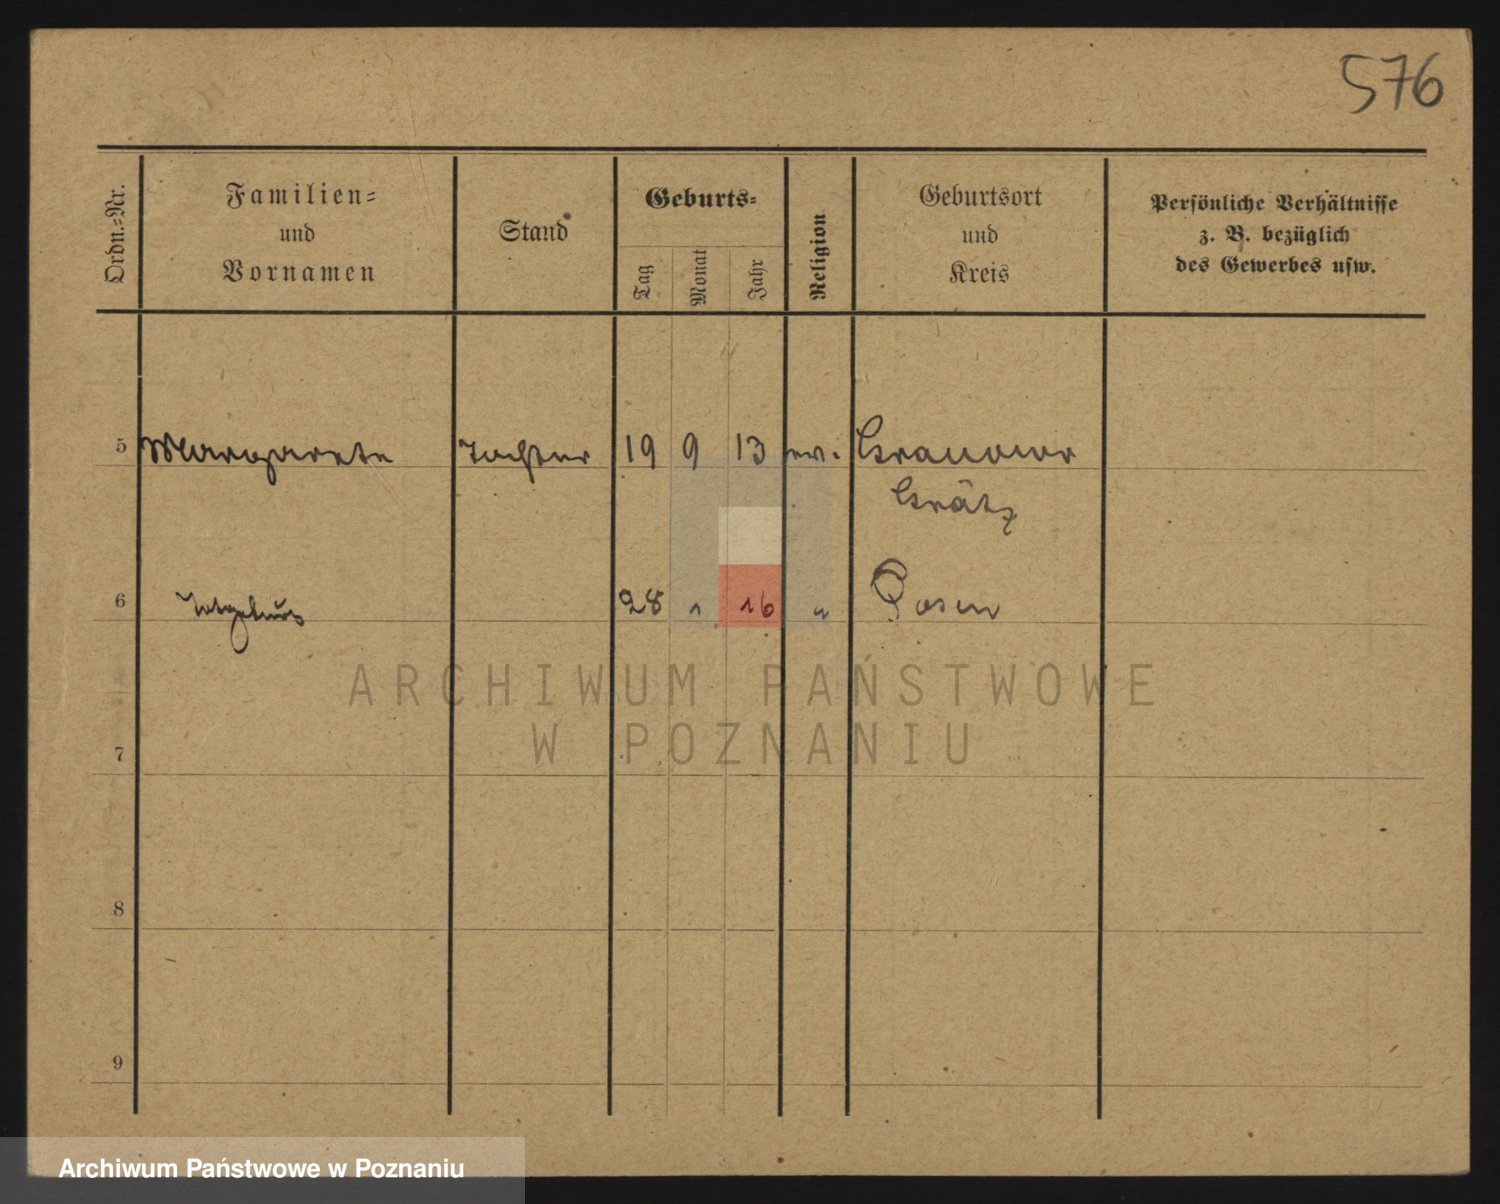 576
Ordn.-Nr.
Familien-
und
Vornamen
Stand
Geburts-
Tag
Monat
Jahr
Religion
Geburtsort
und
Kreis
Persönliche Verhältnisse
z. B. bezüglich
des Gewerbes usw.
5 Margarete Tochter 19 9 13 ev. Granowo
Grätz
6 Totgeburt 28 1 16 " Posen
ARCHIWUM PAŃSTWOWE
W POZNANIU
7
8
9
Archiwum Państwowe w Poznaniu